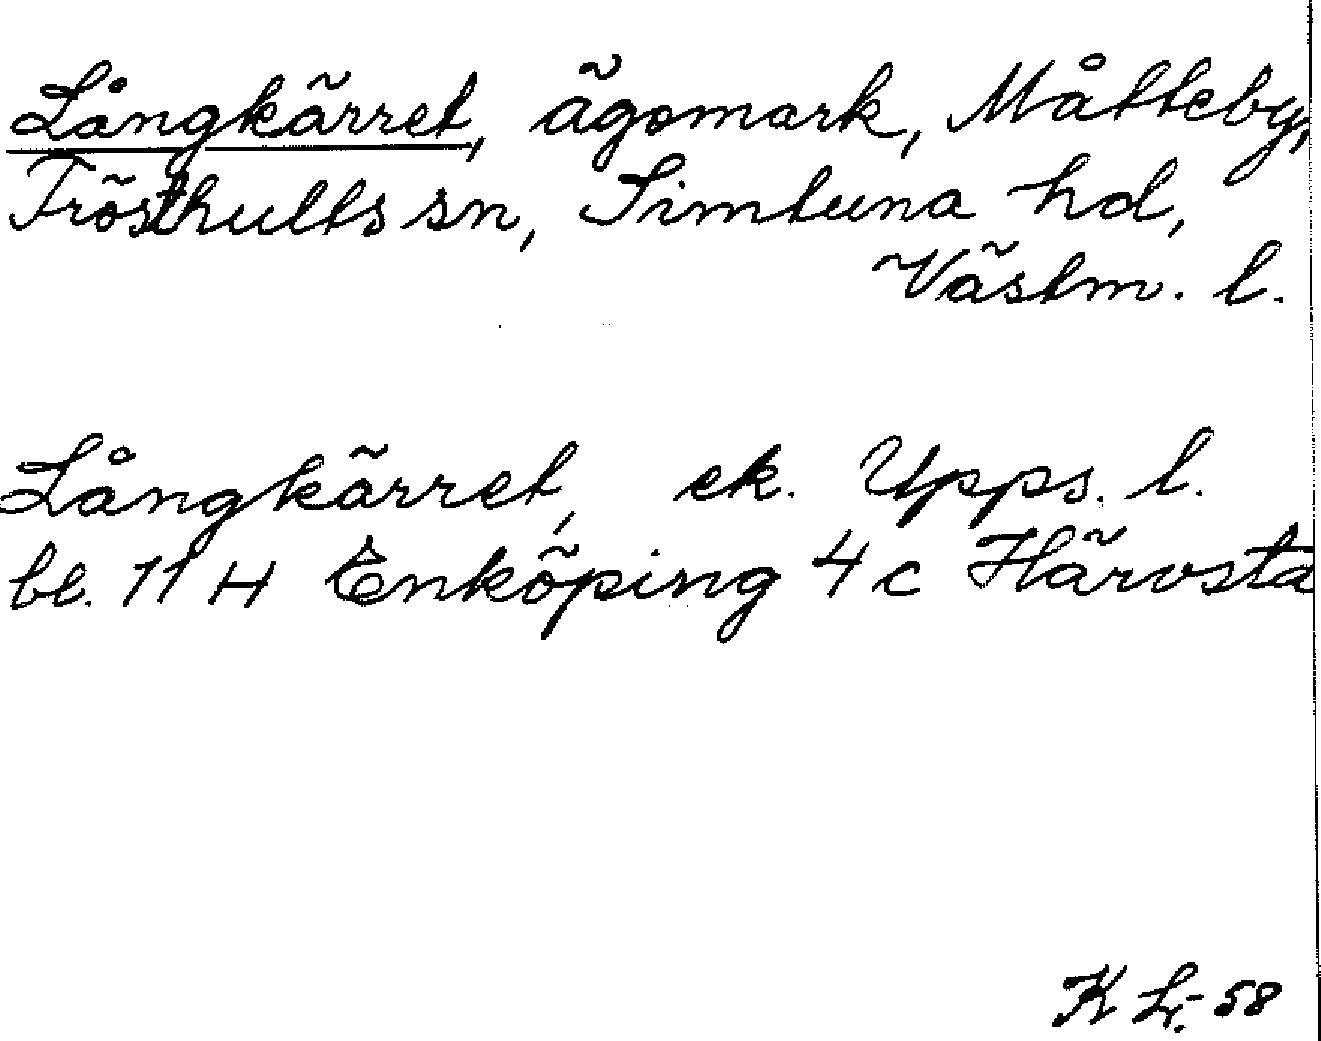 Långkärret, ägomark, Måtteby,
Frösthults sn, Simtuna hd,
Västm. l.
Långkärret, ek. Upps. l.
bl. 11 H Enköping 4 c Härvsta
K Lj. -58